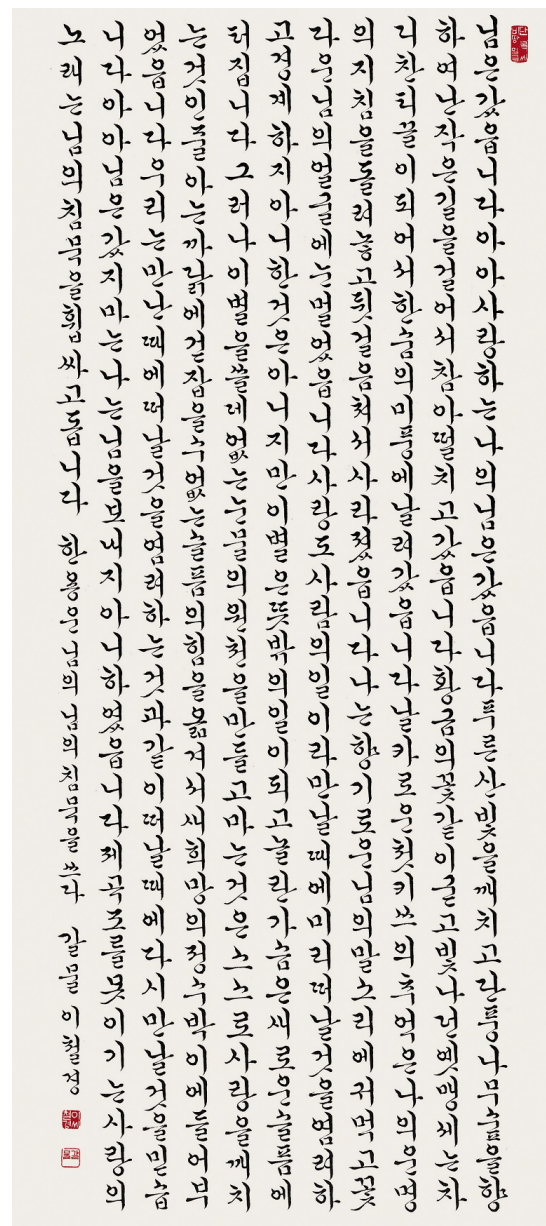 님은갔읍니다아아사랑하는나의님은갔읍니다푸른산빛을깨치고단풍나무숲을향
하여난작은길을걸어서참아떨치고갔읍니다황금의꽃같이굳고빛나던옛맹세는차
디찬티끌이되어서한숨의미풍에날려갔읍니다날카로운첫키쓰의추억은나의운명
의지침을돌려놓고뒷걸음쳐서사라졌읍니다나는향기로운님의말소리에귀먹고꽃
다운님의얼굴에눈멀었읍니다사랑도사람의일이라만날때에미리떠날것을염려하
고경계하지아니한것은아니지만이별은뜻밖의일이되고놀란가슴은새로운슬픔에
터집니다그러나이별을쓸데없는눈물의원천을만들고마는것은스스로사랑을깨치
는것인줄아는까닭에걷잡을수없는슬픔의힘을옮겨서새희망의정수박이에들어부
었읍니다우리는만난때에떠날것을염려하는것과같이떠날때에다시만날것을믿습
니다아아님은갔지마는나는님을보내지아니하였읍니다제곡조를못이기는사랑의
노래는님의침묵을휩싸고돕니다 한용운님의님의침묵을쓰다 갈물 이철경